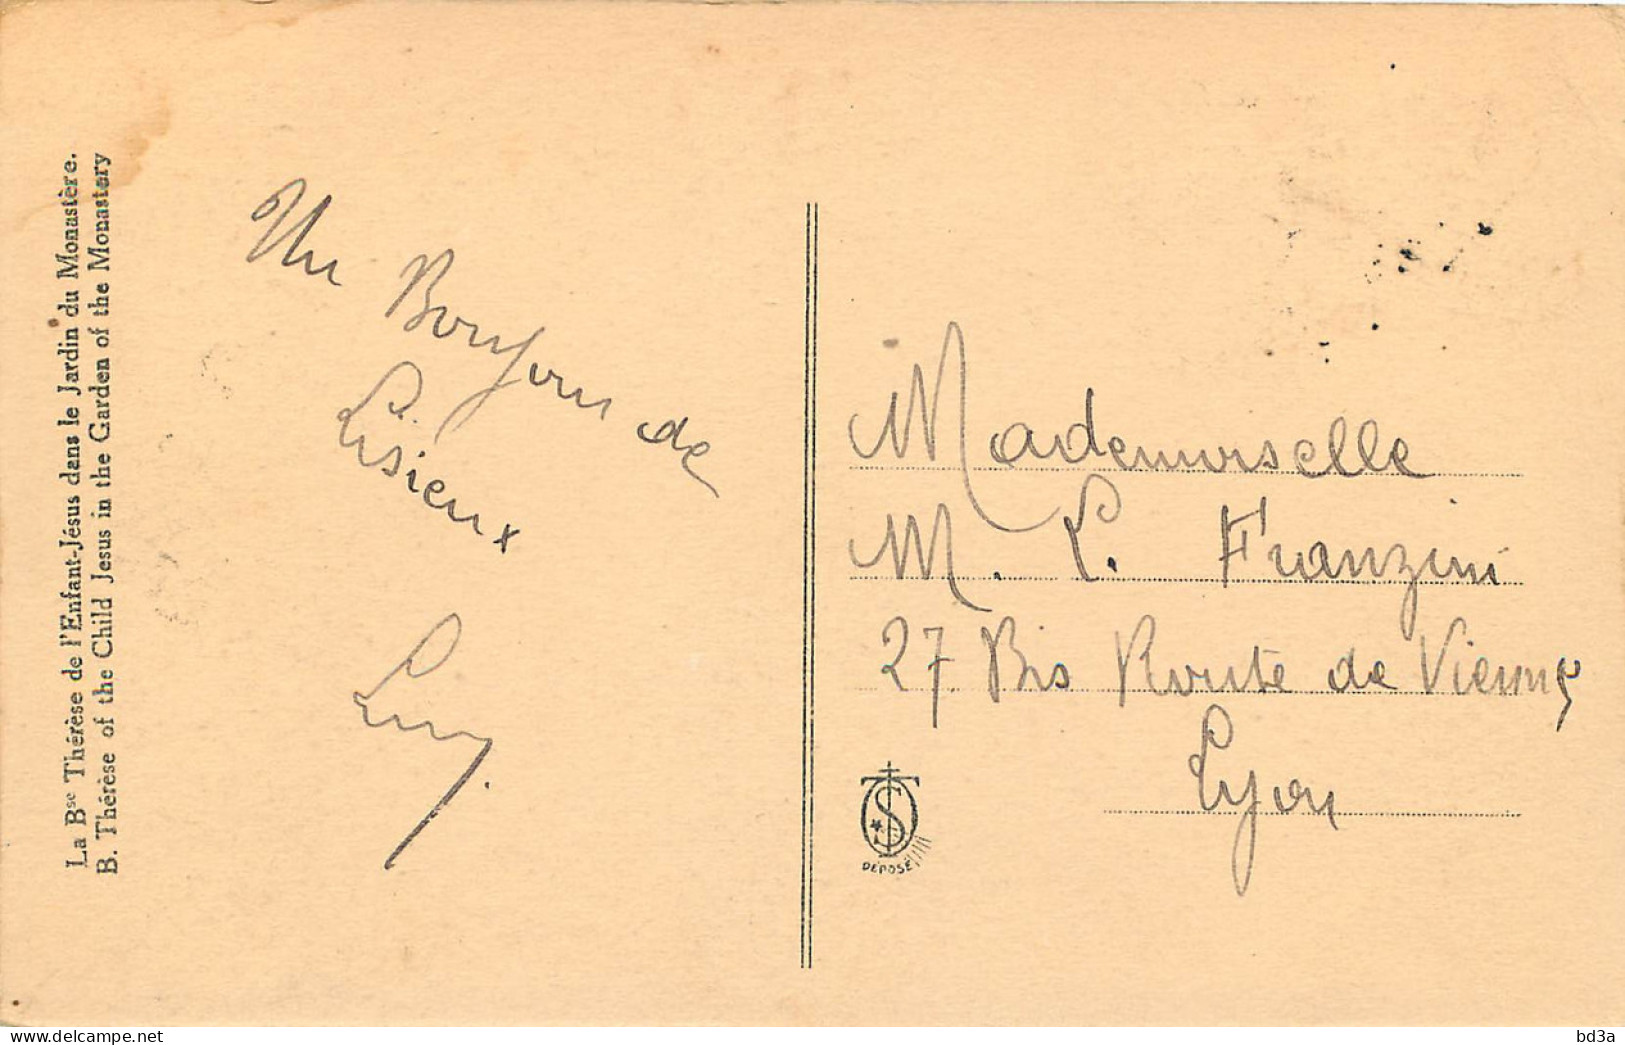 La Bse Thérèse de l'Enfant-Jésus dans le Jardin du Monastère.
B. Thérèse of the Child Jesus in the Garden of the Monastery
Un Bonjour de
Lisieux
Mademoiselle
M. L. Franzini
27 Bis Route de Vienne
Lyon
DÉPOSÉ
www.delcampe.net
bd3a